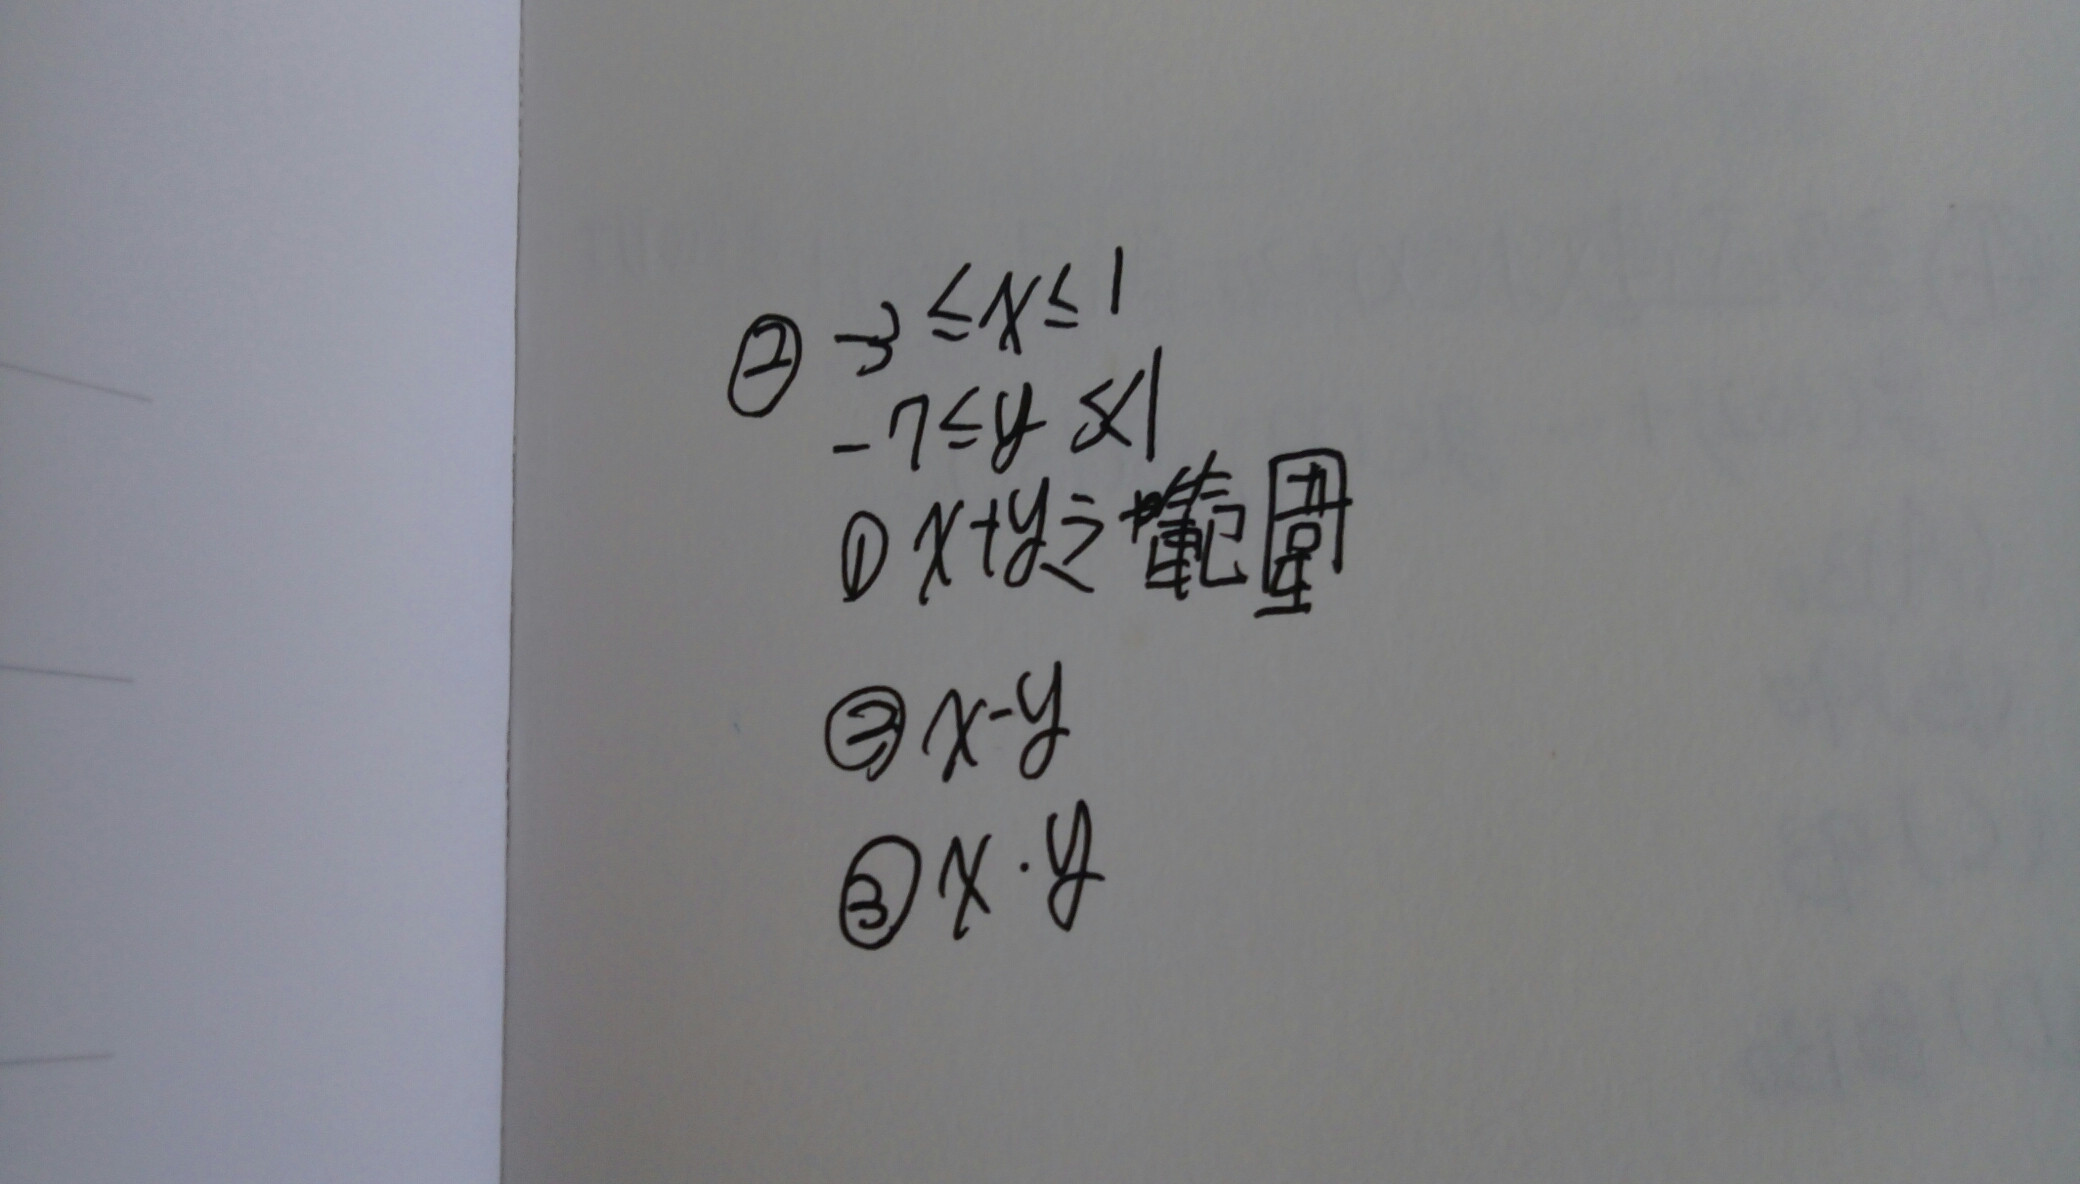 ② -3 ≤ x ≤ 1
-7 ≤ y ≤ 1
① x+y之範圍
② x-y
③ x·y